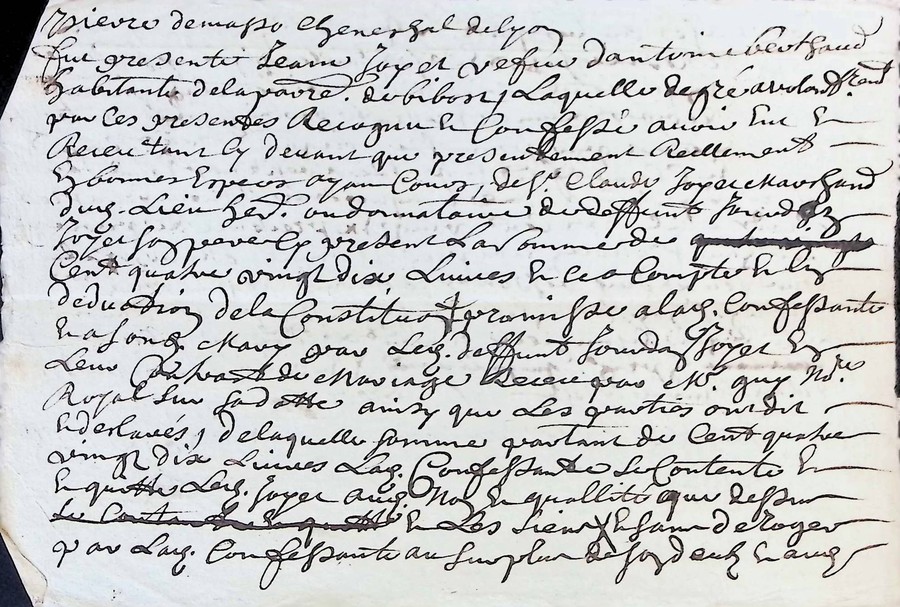 pierre demasso seneschal de lyon
fut presente Jeanne Joyet vefve d'antoine berthaud
habitante de la parre. de bibost, Laquelle de gré a volonté
par Ces presentes Recognu et Confessé avoir Eu Et
Receu tant Cy devant que presentement Reellement
Et bonnes Especes ayant Cours, de Sr. Claude Joyet Marchand
dud. Lieu her. ou donnataire de deffunt
Joyet son pere Cy present La Somme de
Cent quatre vingt dix Livres Et ce a Compte Et En
deduction de la Constitution promisse a lad. Confessante
Et a Son d. Mary par Led. deffunt Joyet En
Leur Contrat de Mariage Receu par Me. guy No.re
Royal Sur Sa datte ainsy que Les parties ont dit
Et desclarés, de laquelle somme partant de Cent quatre
vingt dix Livres Lad. Confessante Se Contente Et
En quitte Led. Joyet aud. Nom Et quallitté que dessus
Se Contente Et En quitte Et Les Siens
par Lad. Confessante au Surplus de